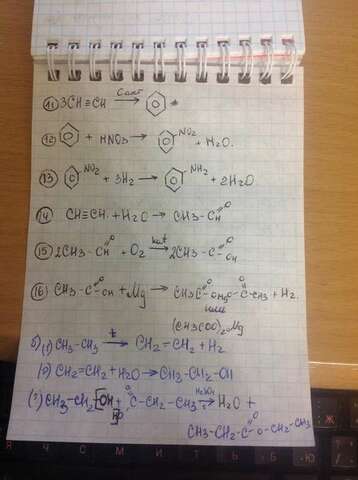 11) 3CH≡CH C акт →
12) + HNO3 → NO2 + H2O.
13) NO2 + 3H2 → NH2 + 2H2O
14) CH≡CH + H2O → CH3-CH O
15) 2CH3-CH O + O2 kat → 2CH3-C O OH
16) CH3-C O OH + Mg → CH3C O O Mg O O C-CH3 + H2.
или
(CH3COO)2Mg
5) (1) CH3-CH3 t → CH2=CH2 + H2
(2) CH2=CH2 + H2O → CH3-CH2-OH
(3) CH3-CH2 OH + O C-CH2-CH3 H2SO4 → H2O +
HO
CH3-CH2-C O O-CH2-CH3